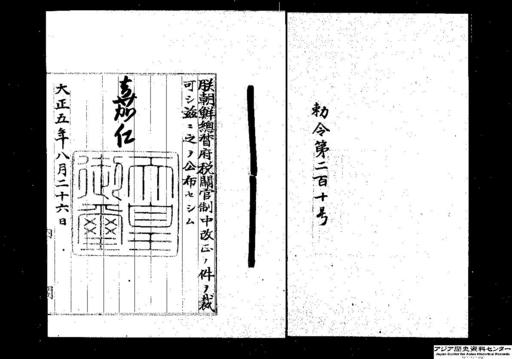 勅令第二百十号
朕朝鮮總督府税關官制中改正ノ件ヲ裁
可シ玆ニ之ヲ公布セシム
嘉仁
天皇
御璽
大正五年八月二十六日
内閣
アジア歴史資料センター
Japan Center for Asian Historical Records